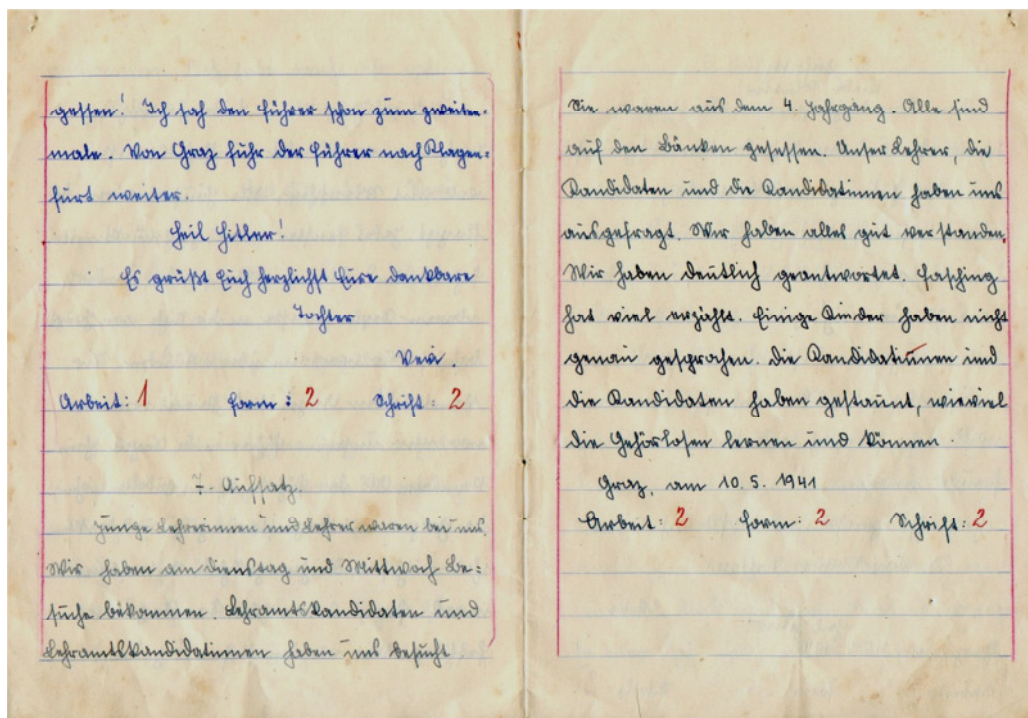 gessen! Ich sah den Führer schon zum zweiten-
male. Von Graz fuhr der Führer nach Klagen-
furt weiter.
Heil Hitler!
Es grüßt Euch herzlichst Eure dankbare
Tochter
Vevi.
Arbeit: 1 Form: 2 Schrift: 2
7. Aufsatz.
Junge Lehrerinnen und Lehrer waren bei uns.
Wir haben am Dienstag und Mittwoch Be-
suche bekommen. Lehramtskandidaten und
Lehramtskandidatinnen haben uns besucht.
Sie waren aus dem 4. Jahrgang. Alle sind
auf den Bänken gesessen. Unser Lehrer, die
Kandidaten und die Kandidatinnen haben uns
ausgefragt. Wir haben alles gut verstanden.
Wir haben deutlich geantwortet. Fasching
hat viel erzählt. Einige Kinder haben nicht
genau gesprochen. Die Kandidatinnen und
die Kandidaten haben gestaunt, wieviel
die Gehörlosen lernen und können.
Graz, am 10. 5. 1941
Arbeit: 2 Form: 2 Schrift: 2